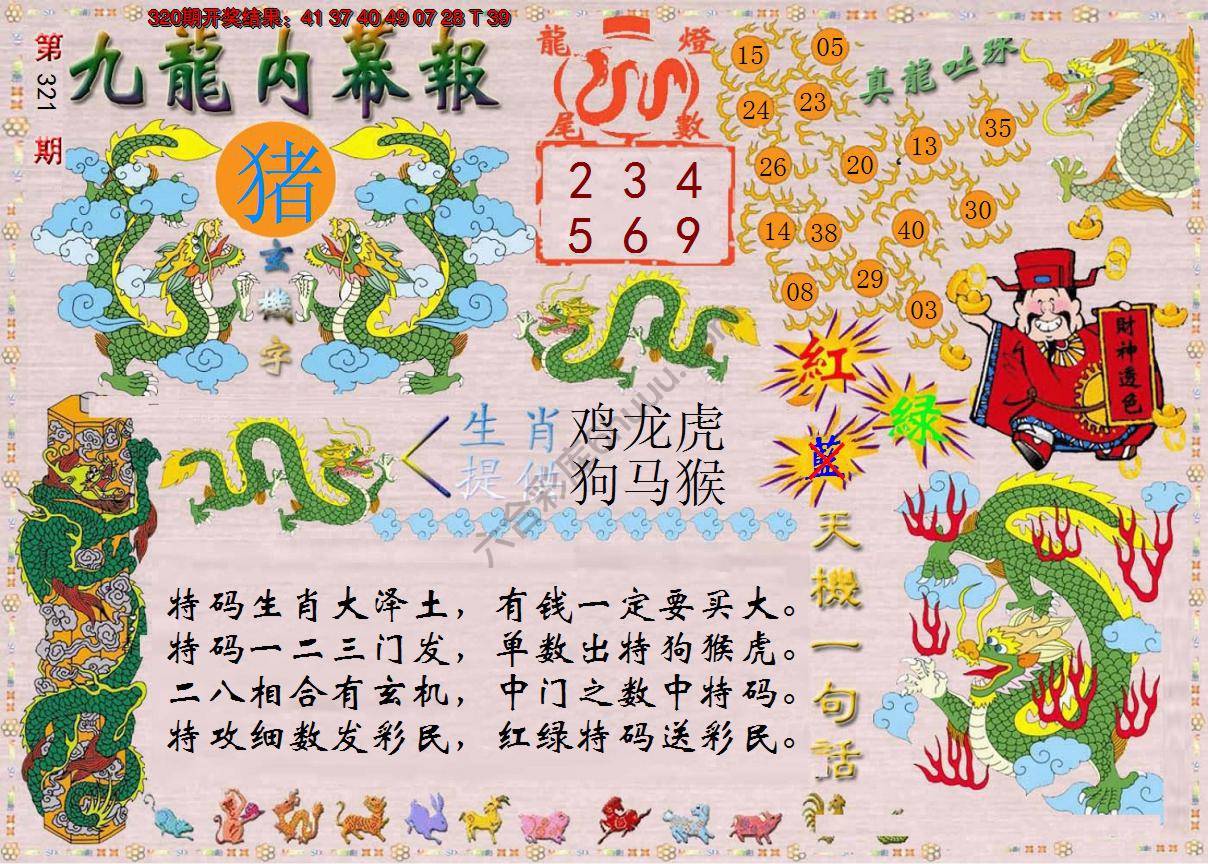 320期开奖结果：41 37 40 49 07 28 T 39
第321期
九龍内幕報
猪
玄機字
龍燈
尾數
2 3 4
5 6 9
真龍吐珠
15 05
24 23
26 20 13 35
14 38 40 30
08 29 03
財神透色
紅
綠
藍
生肖 鸡龙虎
提供 狗马猴
天機一句話
特码生肖大泽土，有钱一定要买大。
特码一二三门发，单数出特狗猴虎。
二八相合有玄机，中门之数中特码。
特攻细数发彩民，红绿特码送彩民。